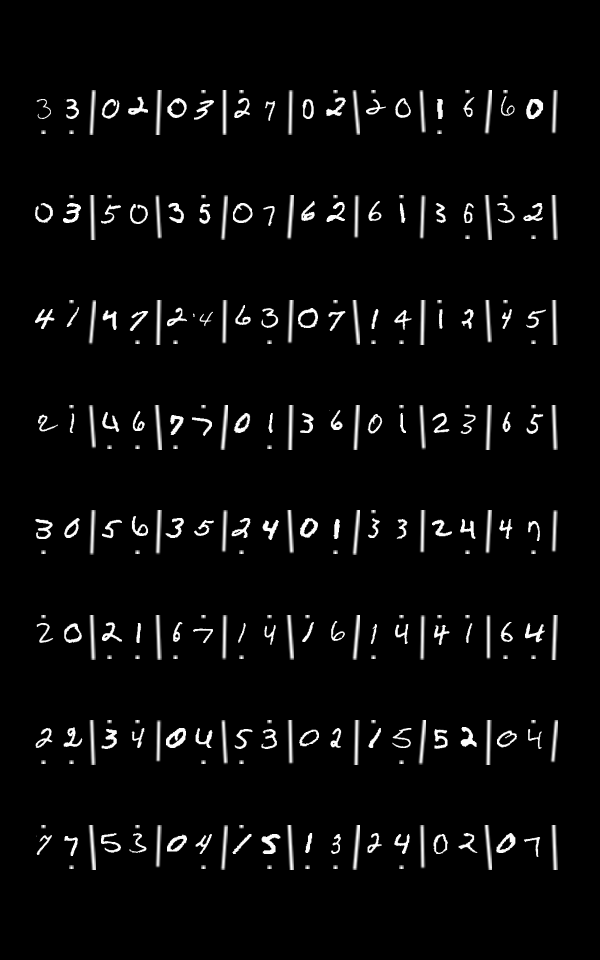 3 3 | 0 2 | 0 3 | 2 7 | 0 2 | 2 0 | 1 6 | 6 0 |
0 3 | 5 0 | 3 5 | 0 7 | 6 2 | 6 1 | 3 6 | 3 2 |
4 1 | 4 7 | 2 4 | 6 3 | 0 7 | 1 4 | 1 2 | 4 5 |
2 1 | 4 6 | 7 7 | 0 1 | 3 6 | 0 1 | 2 3 | 6 5 |
3 0 | 5 6 | 3 5 | 2 4 | 0 1 | 3 3 | 2 4 | 4 7 |
2 0 | 2 1 | 6 7 | 1 4 | 1 6 | 1 4 | 4 1 | 6 4 |
2 2 | 3 4 | 0 4 | 5 3 | 0 2 | 1 5 | 5 2 | 0 4 |
7 7 | 5 3 | 0 4 | 1 5 | 1 3 | 2 4 | 0 2 | 0 7 |